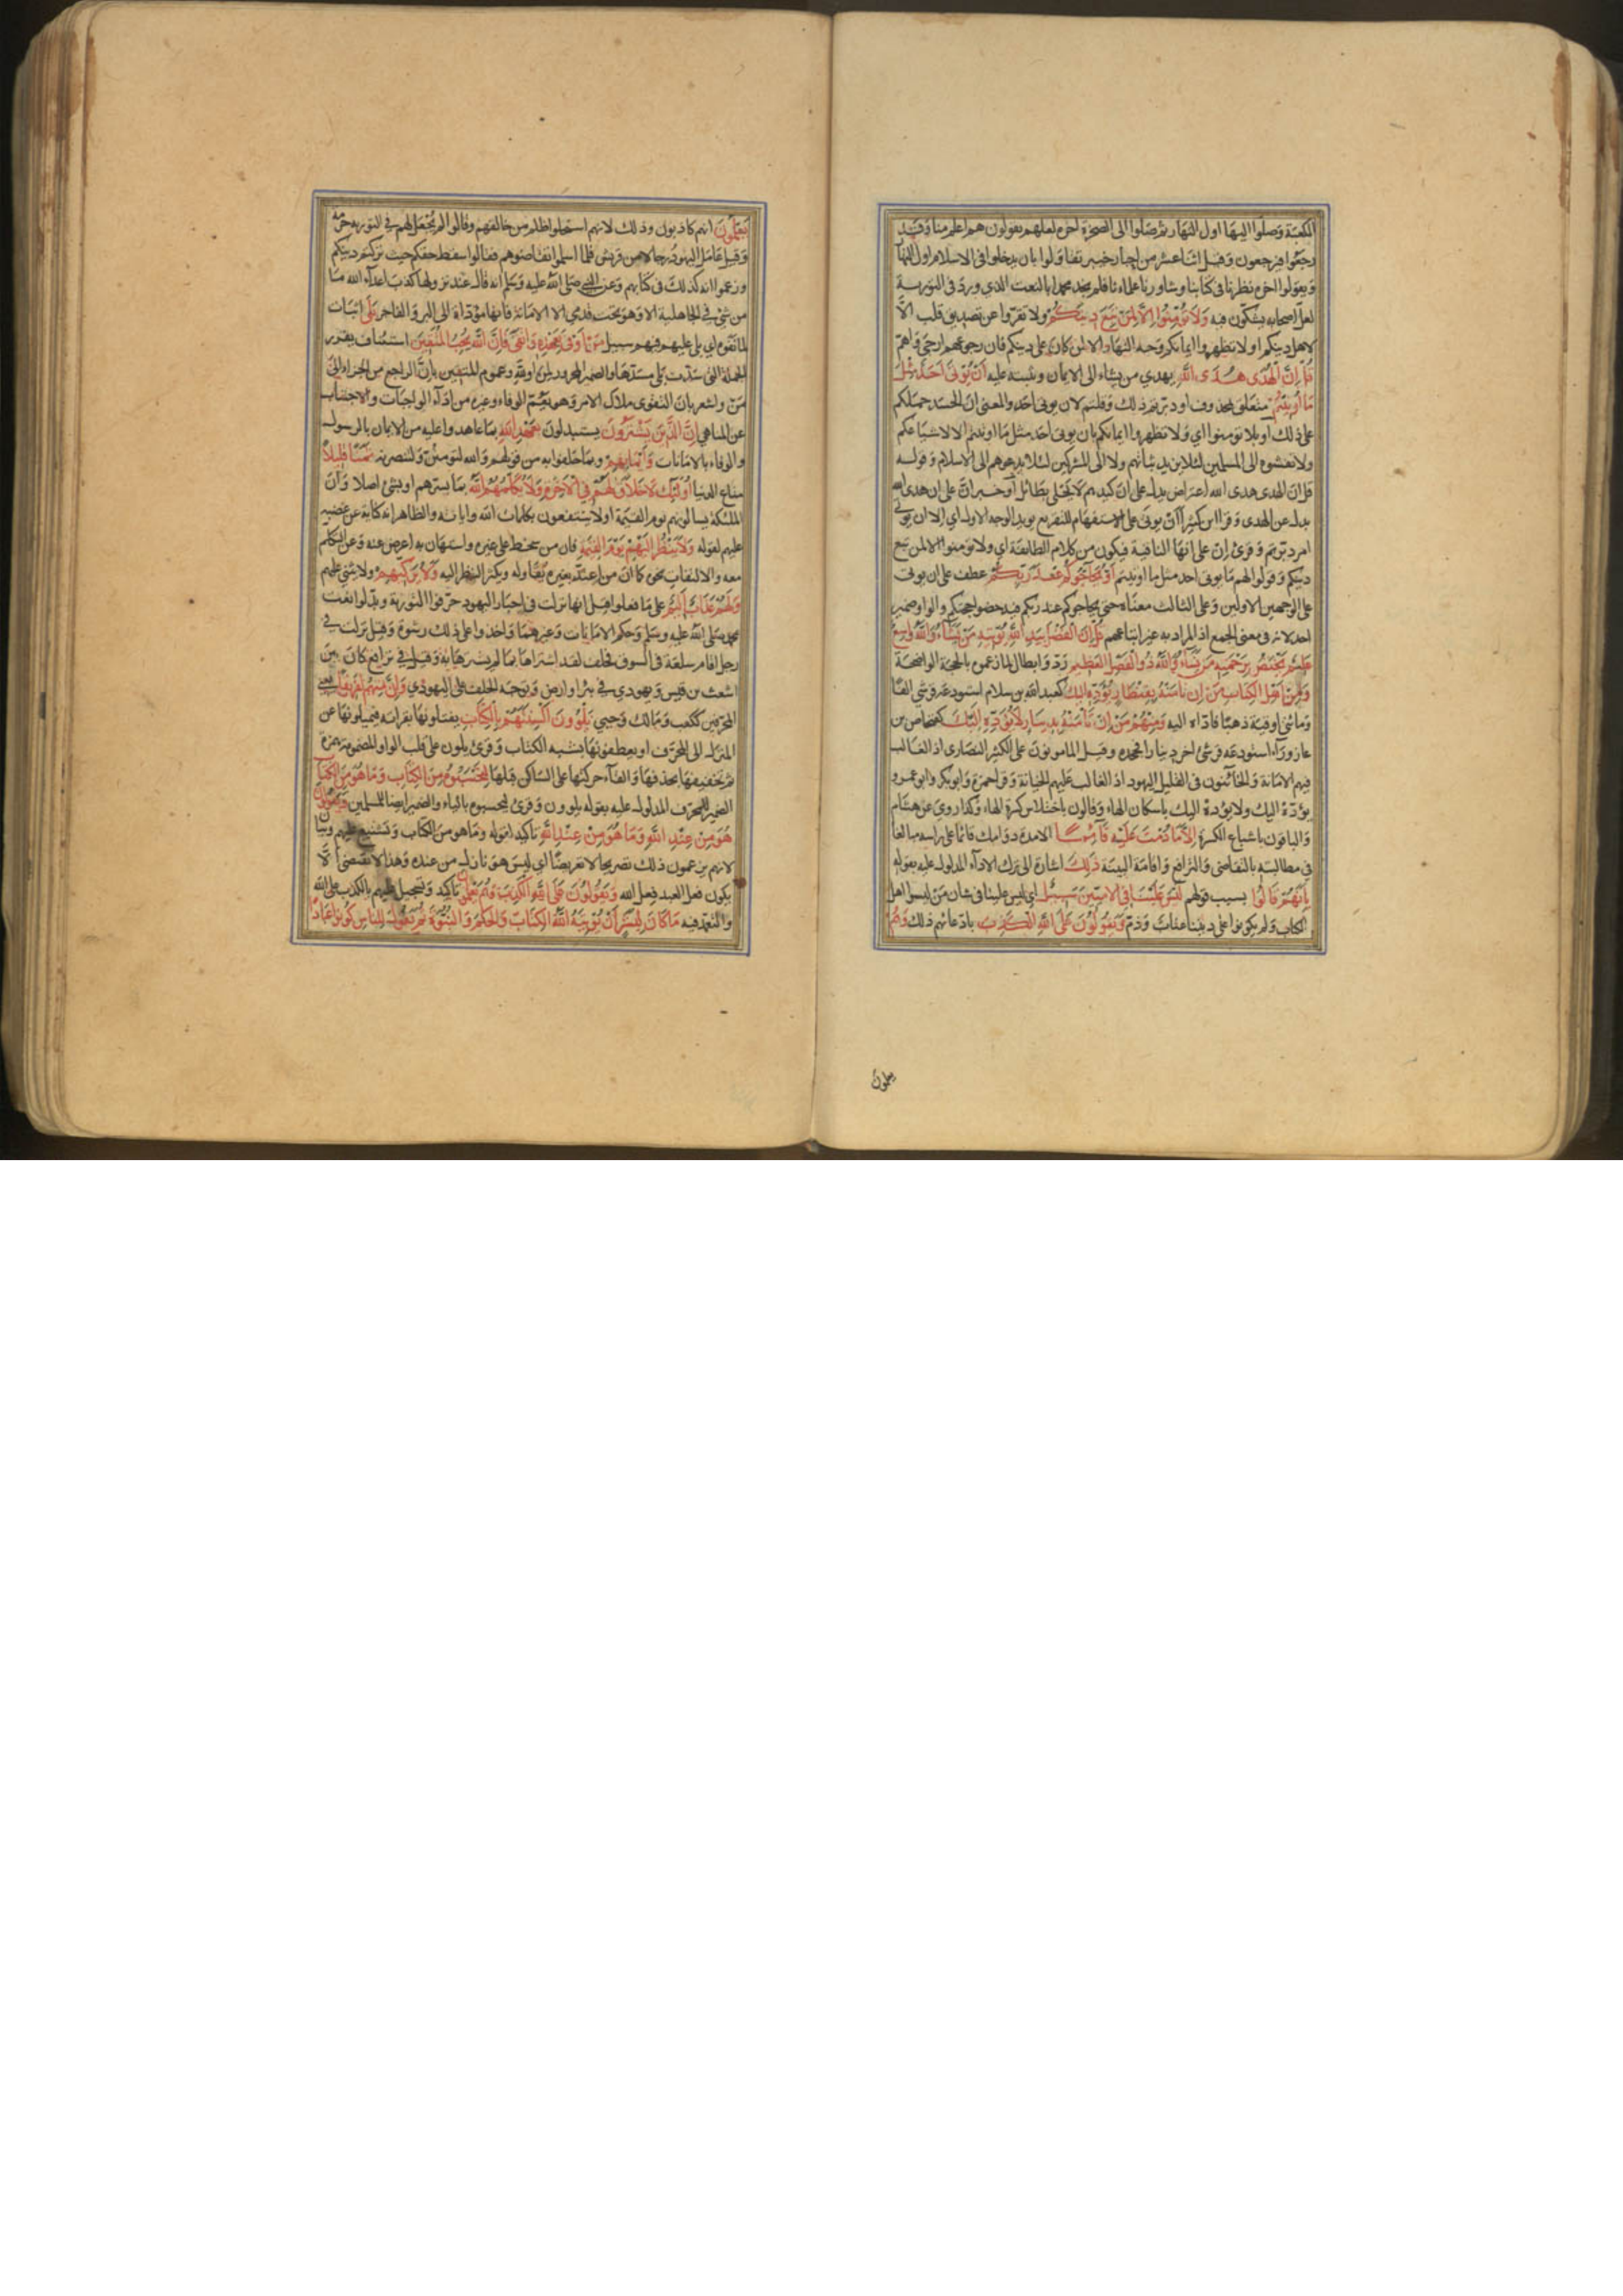 الكعبة وصلوا اليها اول النهار ثم صلوا الى الصخرة اخره لعلهم يقولون هم اعلم منا وقد
رجعوا فيرجعون وقيل اثنا عشر من احبار خيبر تقاولوا بان يدخلوا في الاسلام اول النهار
ويقولوا اخره نظرنا في كتابنا وشاورنا علماءنا فلم نجد محمدا بالنعت الذي ورد في التورية
لعل اصحابه يشكون فيه وَلَا تُؤْمِنُوا اِلَّا لِمَنْ تَبِعَ دِينَكُمْ ولا تقروا عن تصديق قلب الا
لاهل دينكم او لا تظهروا ايمانكم وجه النهار الا لمن كان على دينكم فان رجوعهم ارجى واهم
قُلْ اِنَّ الْهُدَى هُدَى اللَّهِ يهدي من يشاء الى الايمان ويثبته عليه اَنْ يُؤْتَى اَحَدٌ مِثْلَ
مَا اُوتِيتُمْ متعلق بمحذوف اي دبرتم ذلك وقلتم لان يوتى احد والمعنى ان الحسد حملكم
على ذلك او بلا تومنوا اي ولا تظهروا ايمانكم بان يوتى احد مثل ما اوتيتم الا لاشياعكم
ولا تفشوه الى المسلمين لئلا يزيد ثباتهم ولا الى المشركين لئلا يدعوهم الى الاسلام وقوله
قل ان الهدى هدى الله اعتراض يدل على ان كيدهم لا يجدي بطائل او خبر ان على ان هدى الله
بدل عن الهدى وقرا ابن كثير اان يوتى على الاستفهام للتقريع يويد الوجه الاول اي الان يوتى
احد دبرتم وقرئ ان على انها النافية فيكون من كلام الطايفة اي ولا تومنوا الا لمن تبع
دينكم وقولوا لهم ما يوتى احد مثل ما اوتيتم اَوْ يُحَاجُّوكُمْ عِنْدَ رَبِّكُمْ عطف على ان يوتى
على الوجهين الاولين وعلى الثالث معناه حتى يحاجوكم عند ربكم فيدحضوا حجتكم والواو ضمير
احد لانه في معنى الجمع اذ المراد به غير اتباعهم قُلْ اِنَّ الْفَضْلَ بِيَدِ اللَّهِ يُؤْتِيهِ مَنْ يَشَاءُ وَاللَّهُ وَاسِعٌ
عَلِيمٌ يَخْتَصُّ بِرَحْمَتِهِ مَنْ يَشَاءُ وَاللَّهُ ذُو الْفَضْلِ الْعَظِيمِ رد وابطال لما زعموه بالحجة الواضحة
وَمِنْ اَهْلِ الْكِتَابِ مَنْ اِنْ تَأْمَنْهُ بِقِنْطَارٍ يُؤَدِّهِ اِلَيْكَ كعبد الله بن سلام استودعه قرشي الفا
ومائتي اوقية ذهبا فاداه اليه وَمِنْهُمْ مَنْ اِنْ تَأْمَنْهُ بِدِينَارٍ لَا يُؤَدِّهِ اِلَيْكَ كفنحاص بن
عازوراء استودعه قرشي اخر دينارا فجحده وقيل المامونون على الكثير النصارى اذ الغالب
فيهم الامانة والخائنون في القليل اليهود اذ الغالب عليهم الخيانة وقرا حمزة وابو بكر وابو عمرو
يؤده اليك ولا يؤده اليك باسكان الهاء وقالون باختلاس كسرة الهاء وكذا روي عن هشام
والباقون باشباع الكسرة اِلَّا مَا دُمْتَ عَلَيْهِ قَائِمًا الا مدة دوامك قائما على راسه مبالغا
في مطالبته بالتقاضي والترافع واقامة البينة ذَلِكَ اشارة الى ترك الاداء المدلول عليه بقوله
بِاَنَّهُمْ قَالُوا بسبب قولهم لَيْسَ عَلَيْنَا فِي الْاُمِّيِّينَ سَبِيلٌ اي ليس علينا في شان من ليسوا اهل
الكتاب ولم يكونوا على ديننا عتاب وذم وَيَقُولُونَ عَلَى اللَّهِ الْكَذِبَ بادعائهم ذلك وَهُمْ
يعلمون
يَعْلَمُونَ انهم كاذبون وذلك لانهم استحلوا ظلم من خالفهم وقالوا لم يجعل لهم في التورية حرمة
وقيل عامل اليهود رجالا من قريش فلما اسلموا تقاضوهم فقالوا سقط حقكم حيث تركتم دينكم
وزعموا انه كذلك في كتابهم وعن النبي صلى الله عليه وسلم انه قال عند نزولها كذب اعداء الله ما
من شيء في الجاهلية الا وهو تحت قدمي الا الامانة فانها مؤداة الى البر والفاجر بَلَى اثبات
لما نفوه اي بلى عليهم فيهم سبيل مَنْ اَوْفَى بِعَهْدِهِ وَاتَّقَى فَاِنَّ اللَّهَ يُحِبُّ الْمُتَّقِينَ استئناف يقرر
الجملة التي سدت بلى مسدها والضمير المجرور لمن او لله وعموم المتقين ناب الراجع من الجزاء الى
من واشعر بان التقوى ملاك الامر وهو يعم الوفاء وغيره من اداء الواجبات والاجتناب
عن المناهي اِنَّ الَّذِينَ يَشْتَرُونَ يستبدلون بِعَهْدِ اللَّهِ بما عاهدوا عليه من الايمان بالرسول
والوفاء بالامانات وَاَيْمَانِهِمْ وبما حلفوا به من قولهم والله لنومنن به ولننصرنه ثَمَنًا قَلِيلًا
متاع الدنيا اُولَئِكَ لَا خَلَاقَ لَهُمْ فِي الْآخِرَةِ وَلَا يُكَلِّمُهُمُ اللَّهُ بما يسرهم او بشيء اصلا وان
الملئكة يسالونهم يوم القيمة او لا ينتفعون بكلمات الله واياته والظاهر انه كناية عن غضبه
عليهم لقوله وَلَا يَنْظُرُ اِلَيْهِمْ يَوْمَ الْقِيَمَةِ فان من سخط على غيره واستهان به اعرض عنه وعن التكلم
معه والالتفات نحوه كما ان من اعتد بغيره يقاوله ويكثر النظر اليه وَلَا يُزَكِّيهِمْ ولا يثني عليهم
وَلَهُمْ عَذَابٌ اَلِيمٌ على ما فعلوا قيل انها نزلت في احبار اليهود حرفوا التورية وبدلوا نعت
محمد صلى الله عليه وسلم وحكم الامانات وغيرهما واخذوا على ذلك رشوة وقيل نزلت في
رجل اقام سلعة في السوق فحلف لقد اشتراها بما لم يشترها به وقيل في ترافع كان بين
اشعث بن قيس ويهودي في بئر او ارض وتوجه الحلف على اليهودي وَاِنَّ مِنْهُمْ لَفَرِيقًا يعني
المحرفين ككعب ومالك وحيي يَلْوُونَ اَلْسِنَتَهُمْ بِالْكِتَابِ يفتلونها بقراته فيميلونها عن
المنزل الى المحرف او يعطفونها بشبه الكتاب وقرئ يلون على قلب الواو المضمومة همزة
ثم تخفيفها بحذفها والقاء حركتها على الساكن قبلها لِتَحْسَبُوهُ مِنَ الْكِتَابِ وَمَا هُوَ مِنَ الْكِتَابِ
الضمير للمحرف المدلول عليه بقوله يلوون وقرئ ليحسبوه بالياء والضمير ايضا للمسلمين وَيَقُولُونَ
هُوَ مِنْ عِنْدِ اللَّهِ وَمَا هُوَ مِنْ عِنْدِ اللَّهِ تاكيد لقوله وما هو من الكتاب وتشنيع عليهم وبيان
لانهم يزعمون ذلك تصريحا لا تعريضا اي ليس هو نازلا من عنده وهذا لا يقتضي الا
يكون فعل العبد فعل الله وَيَقُولُونَ عَلَى اللَّهِ الْكَذِبَ وَهُمْ يَعْلَمُونَ تاكيد وتسجيل عليهم بالكذب على الله
والتعمد فيه مَا كَانَ لِبَشَرٍ اَنْ يُؤْتِيَهُ اللَّهُ الْكِتَابَ وَالْحُكْمَ وَالنُّبُوَّةَ ثُمَّ يَقُولَ لِلنَّاسِ كُونُوا عِبَادًا